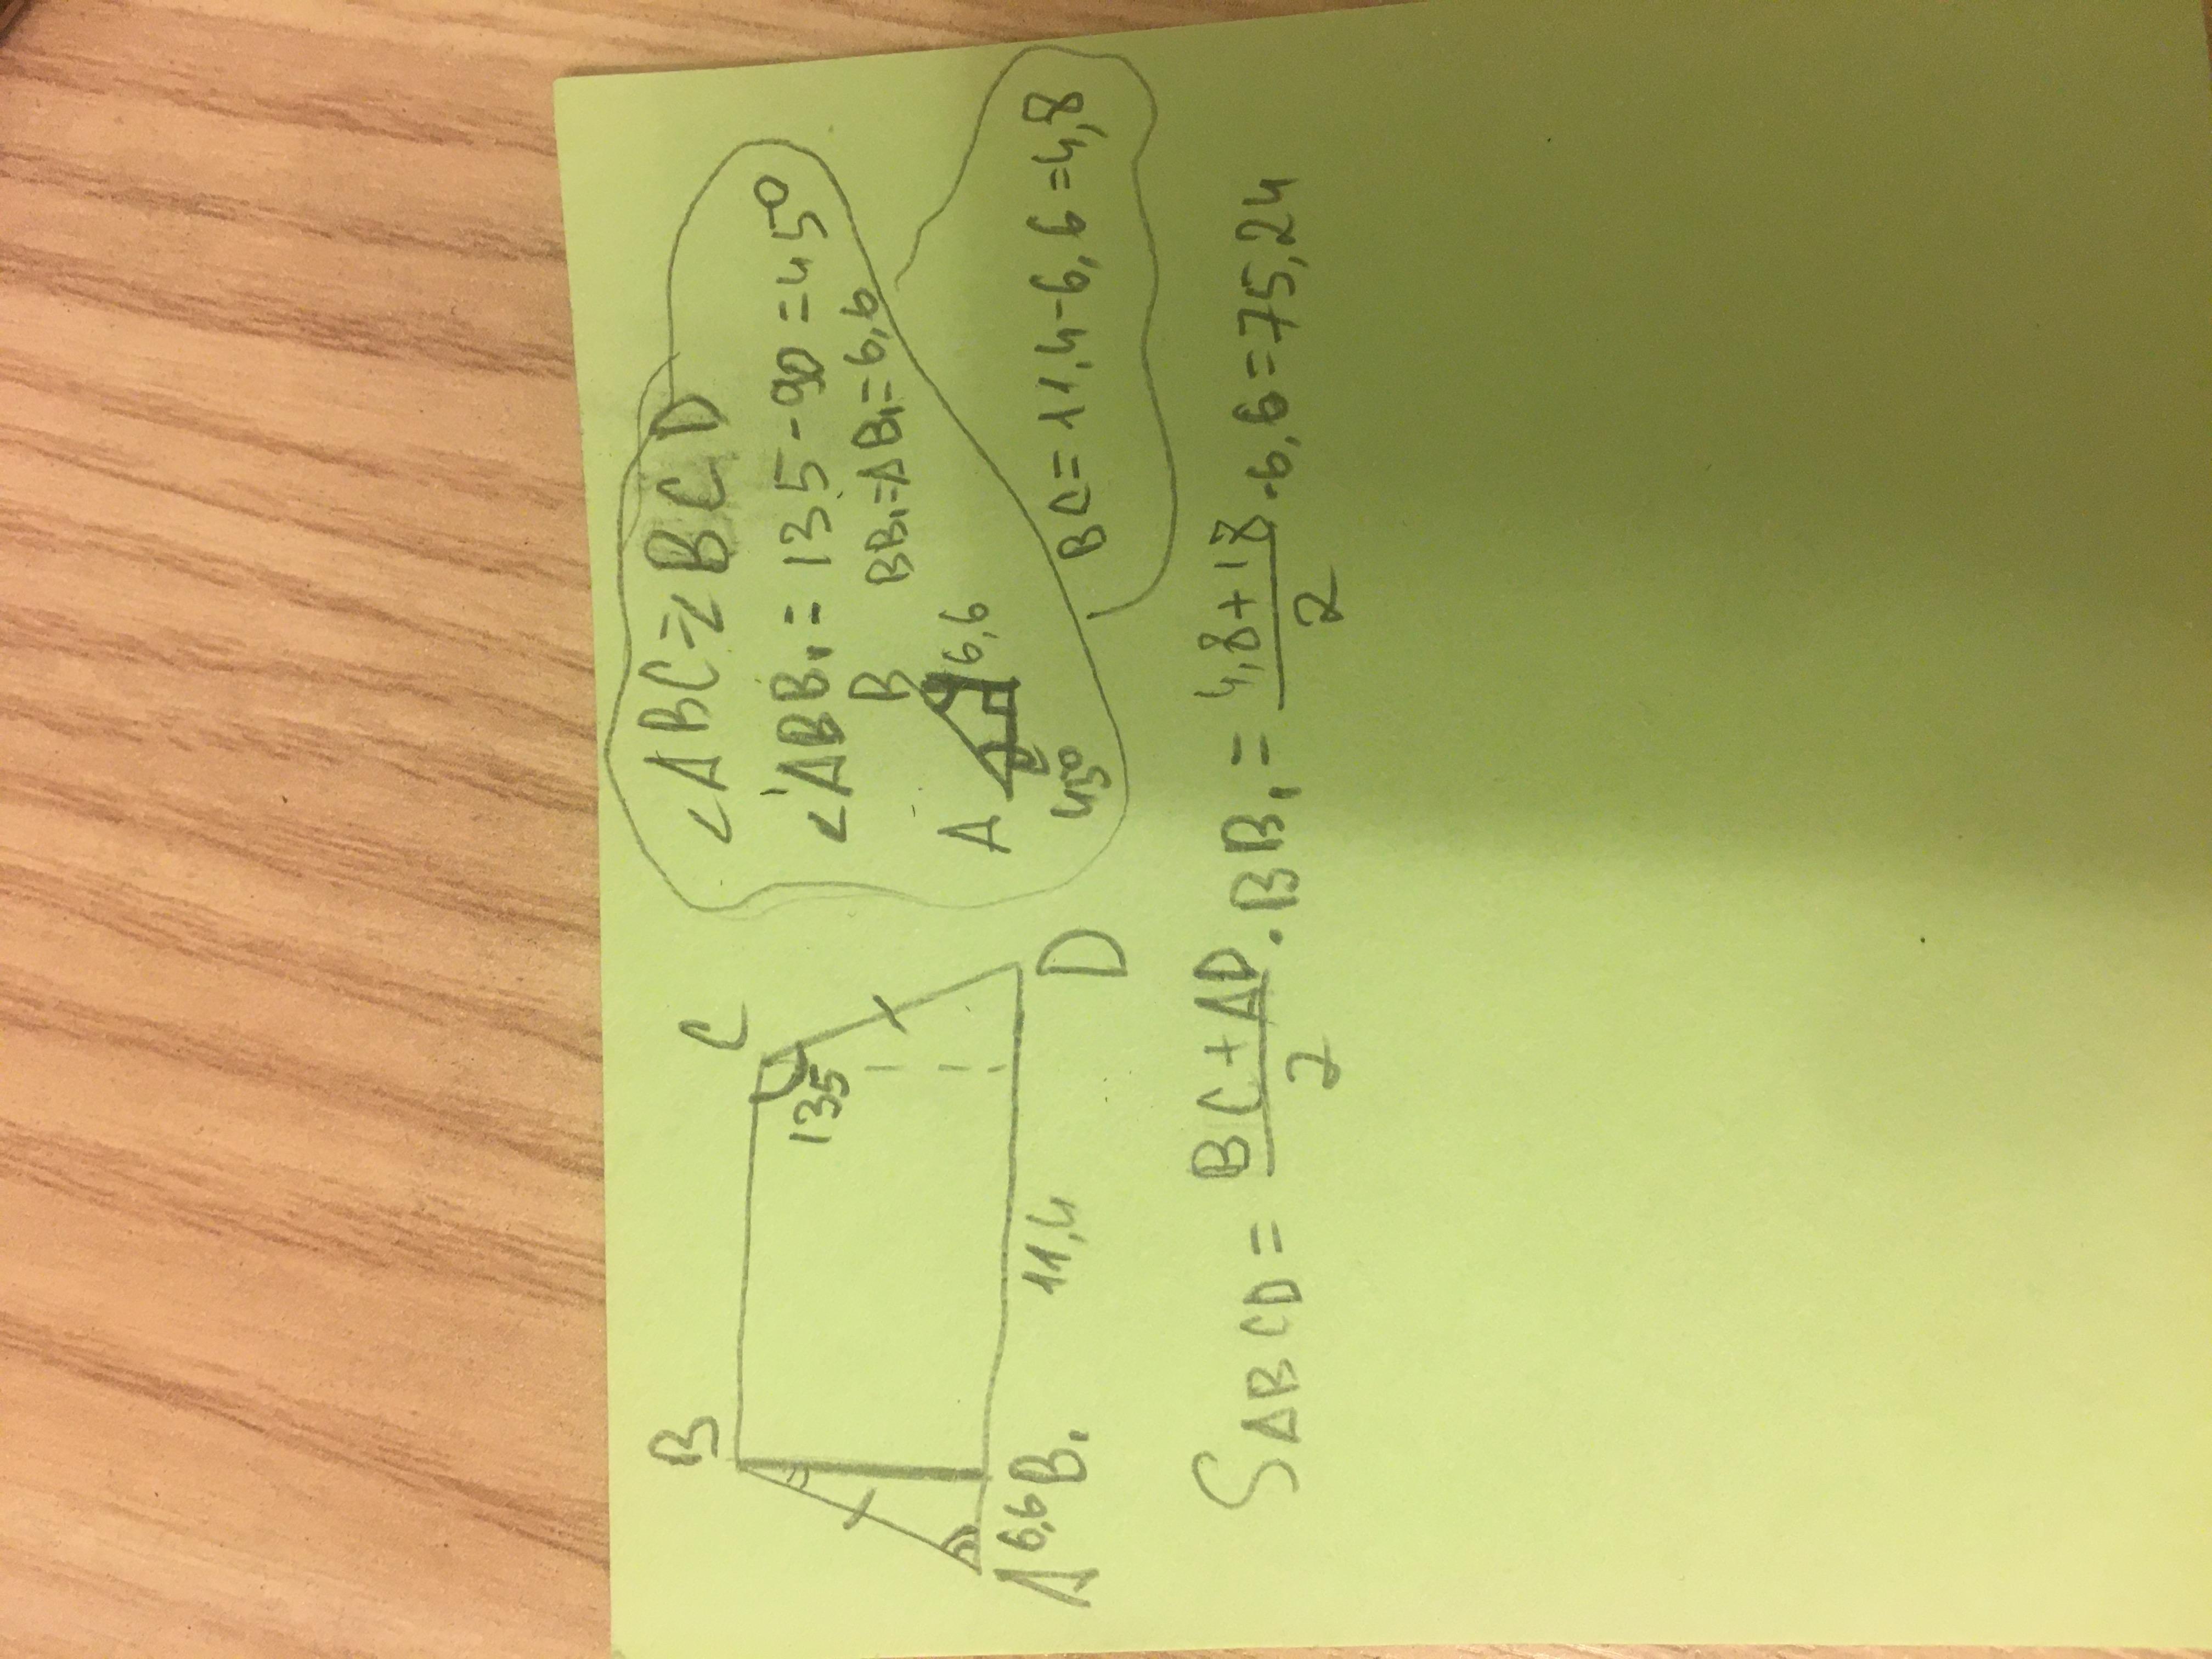 ∠ABC=∠BCD
∠ABB₁=135-90=45°
BB₁=AB₁=6,6
B
6,6
A
45°
BC=11,4-6,6=4,8
B
C
135
A
6,6
B₁
11,4
D
SABCD = (BC+AD)/2 · BB₁ = (4,8+18)/2 · 6,6 = 75,24